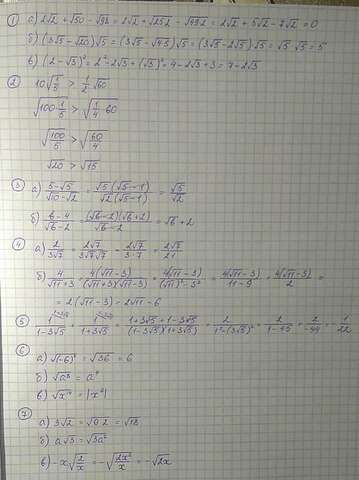 ① а) 2√2 + √50 − √98 = 2√2 + √25·2 − √49·2 = 2√2 + 5√2 − 7√2 = 0
б) (3√5 − √20)√5 = (3√5 − √4·5)√5 = (3√5 − 2√5)√5 = √5·√5 = 5
в) (2 − √3)² = 2² − 2·2√3 + (√3)² = 4 − 2√3 + 3 = 7 − 2√3
② 10√(1/5) > 1/2 √60
√(100·1/5) > √(1/4·60)
√(100/5) > √(60/4)
√20 > √15
③ а) (5−√5)/(√10−√2) = √5(√5−1)/(√2(√5−1)) = √5/√2
б) (6−4)/(√6−2) = (√6−2)(√6+2)/(√6−2) = √6 + 2
④ а) 2/(3√7) = 2√7/(3√7√7) = 2√7/(3·7) = 2√7/21
б) 4/(√11+3) = 4(√11−3)/((√11+3)(√11−3)) = 4(√11−3)/((√11)²−3²) = 4(√11−3)/(11−9) = 4(√11−3)/2 =
= 2(√11−3) = 2√11 − 6
⑤ 1/(1−3√5) + 1/(1+3√5) = (1+3√5+1−3√5)/((1−3√5)(1+3√5)) = 2/(1²−(3√5)²) = 2/(1−45) = 2/−44 = −1/22
⑥
а) √(−6)² = √36 = 6
б) √a⁸ = a⁴
⑦
а) 3√2 = √9·2 = √18
б) a√3 = √3a²
в) −x√(2/x) = −√(2x²/x) = −√2x